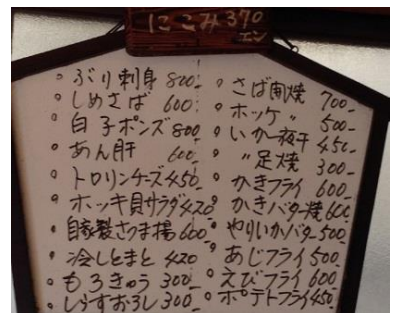 にこみ370
エン
ぶり刺身 800-
しめさば 600-
白子ポンズ 800
あん肝 600-
トロリンチーズ 450-
ホッキ貝サラダ 420
自家製さつま揚 600-
冷しとまと 420
もろきゅう 300-
しらすおろし 300-
さば開焼 700-
ホッケ 〃 500-
いか一夜干 450-
〃 足焼 300-
かきフライ 600-
かきバター焼 600-
やりいかバター 500-
あじフライ 500-
えびフライ 600-
ポテトフライ 450-